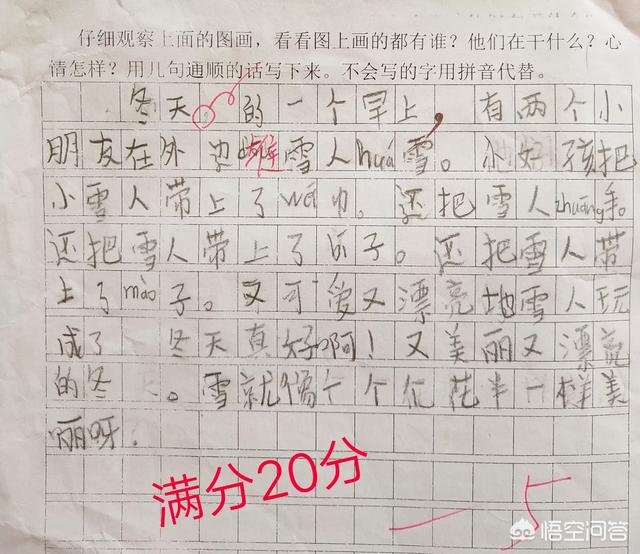 仔细观察上面的图画，看看图上画的都有谁？他们在干什么？心
情怎样？用几句通顺的话写下来。不会写的字用拼音代替。
冬天。的一个早上，有两个小
朋友在外边堆雪人huá雪。小好孩把
小雪人带上了wéi巾。还把雪人zhuāng手。
还把雪人带上了鼻子。还把雪人带
上了mào子。又可爱又漂亮地雪人玩
成了 冬天真好啊！又美丽又漂亮
的冬 。雪就像个个花半一样美
丽呀.
满分20分
一5
悟空问答